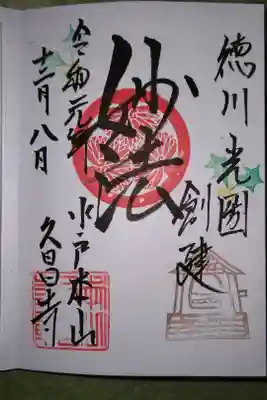 徳川光圀
創建
妙法
水戸本山
久昌寺
令和元年
十二月八日